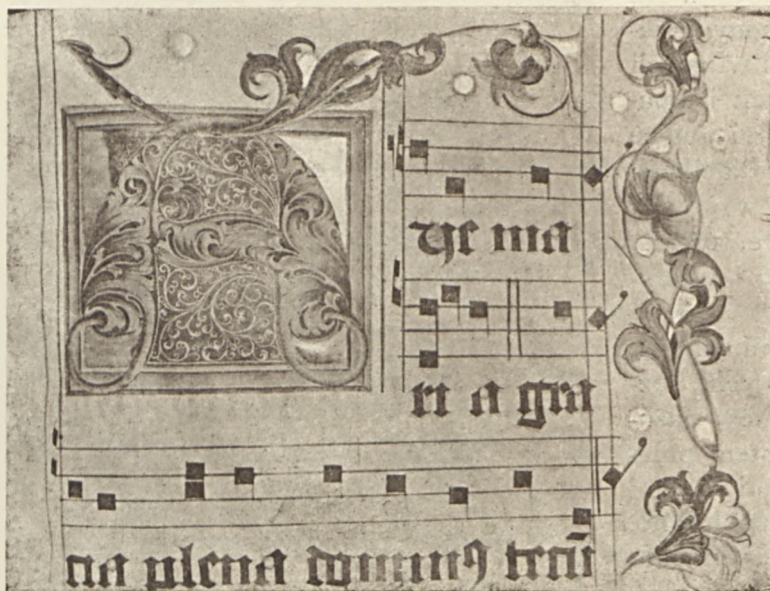 Aue ma
ri a gra
cia plena dominꝰ tecū